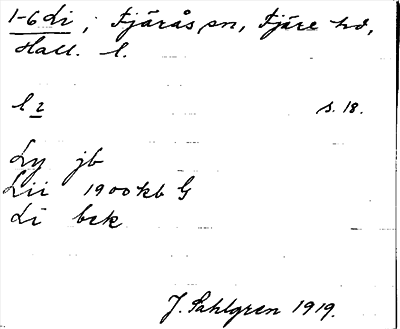 1-6 Li, Fjärås sn, Fjäre hd,
Hall. l.
l 2 s. 18.
Ly jb
Lii 1900 kb G
Li bek
J. Sahlgren 1919.